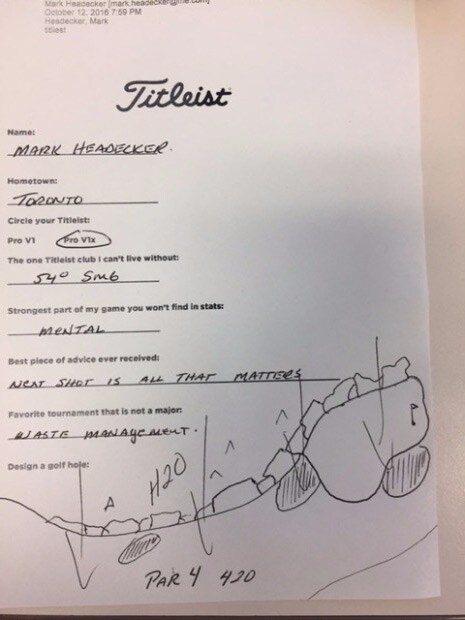 Mark Headecker [mark.headecker@me.com]
October 12, 2016 7:59 PM
Headecker, Mark
titleist
Titleist
Name:
MARK HEADECKER.
Hometown:
TORONTO
Circle your Titleist:
Pro V1 Pro V1x
The one Titleist club I can't live without:
54° SM6
Strongest part of my game you won't find in stats:
MENTAL
Best piece of advice ever received:
NEXT SHOT IS ALL THAT MATTERS
Favorite tournament that is not a major:
WASTE MANAGEMENT.
Design a golf hole:
H2O
PAR 4 420